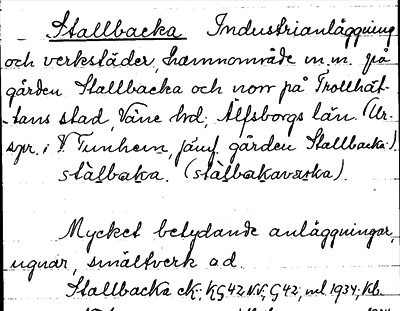 Stallbacka Industrianläggning
och verkstäder, hamnområde m.m. på
gården Stallbacka och norr på Trollhät-
tans stad, Väne hd, Älfsborgs län. (Ur-
spr. i V. Tunhem, jämf. gården Stallbacka.)
stàlbaka. (stàlbakavarska).
Mycket betydande anläggningar,
ugnar, smältverk o.d.
Stallbacka ek; KG42 NV; G42; ml 1934; Kb.